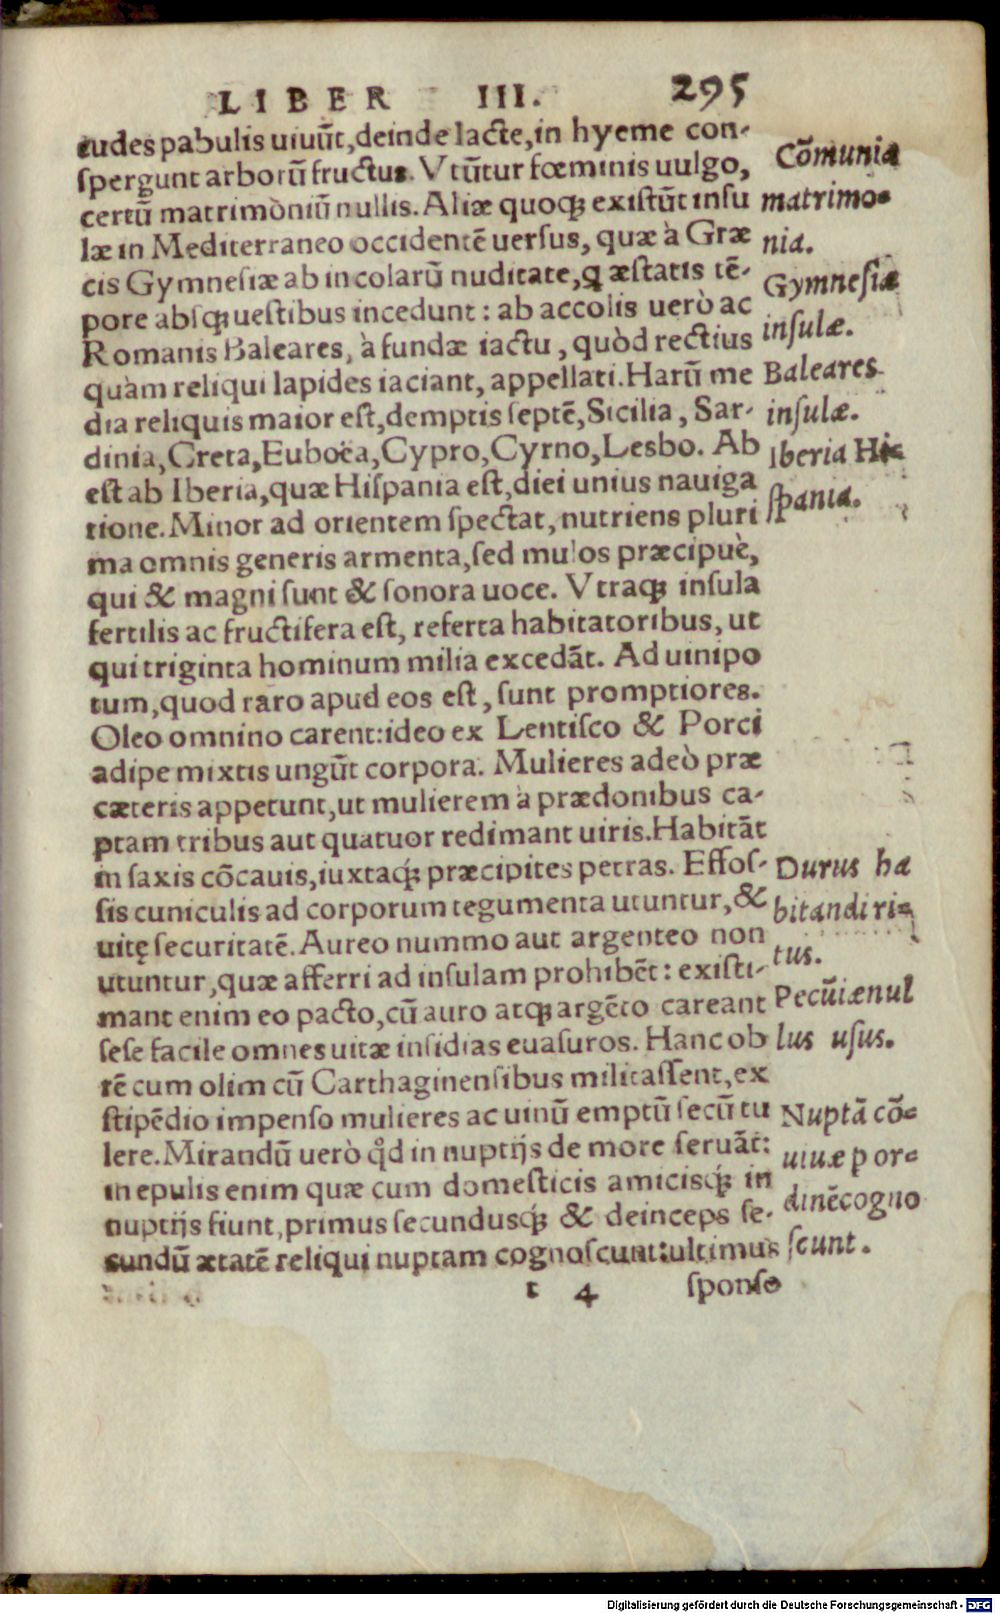 LIBER III. 295
cudes pabulis uiuũt, deinde lacte, in hyeme con-
spergunt arborũ fructus. Vtũtur fœminis uulgo,
certũ matrimòniũ nullis. Aliæ quoqꝫ existũt insu
læ in Mediterraneo occidentẽ uersus, quæ à Græ
cis Gymnesiæ ab incolarũ nuditate, ꝙ æstatis tẽ-
pore absqꝫ uestibus incedunt: ab accolis uerò ac
Romanis Baleares, à fundæ iactu, quòd rectius
quàm reliqui lapides iaciant, appellati. Harũ me
dia reliquis maior est, demptis septẽ, Sicilia, Sar-
dinia, Creta, Euboëa, Cypro, Cyrno, Lesbo. Ab
est ab Iberia, quæ Hispania est, diei unius nauiga
tione. Minor ad orientem spectat, nutriens pluri
ma omnis generis armenta, sed mulos præcipuè,
qui & magni sunt & sonora uoce. Vtraqꝫ insula
fertilis ac fructifera est, referta habitatoribus, ut
qui triginta hominum milia excedãt. Ad uini po
tum, quod raro apud eos est, sunt promptiores.
Oleo omnino carent: ideo ex Lentisco & Porci
adipe mixtis ungũt corpora. Mulieres adeò præ
cæteris appetunt, ut mulierem à prædonibus ca-
ptam tribus aut quatuor redimant uiris. Habitãt
in saxis cõcauis, iuxtaqꝫ́ præcipites petras. Effos-
sis cuniculis ad corporum tegumenta utuntur, &
uitę securitatẽ. Aureo nummo aut argenteo non
utuntur, quæ afferri ad insulam prohibẽt: existi-
mant enim eo pacto, cũ auro atqꝫ argẽto careant
sese facile omnes uitæ insidias euasuros. Hanc ob
rẽ cum olim cũ Carthaginensibus militassent, ex
stipẽdio impenso mulieres ac uinũ emptũ secũ tu
lere. Mirandũ uerò qd̛ in nuptijs de more seruãt:
in epulis enim quæ cum domesticis amicisqꝫ́ in
nuptijs fiunt, primus secundusqꝫ́ & deinceps se-
cundũ ætatẽ reliqui nuptam cognoscunt: ultimus
t 4 sponso
Cõmunia
matrimo-
nia.
Gymnesiæ
insulæ.
Baleares
insulæ.
Iberia Hi-
spania.
Durus ha
bitandi ri-
tus.
Pecũiæ nul
lus usus.
Nuptã cõ-
uiuæ p or-
dinẽ cogno
scunt.
Digitalisierung gefördert durch die Deutsche Forschungsgemeinschaft - DFG